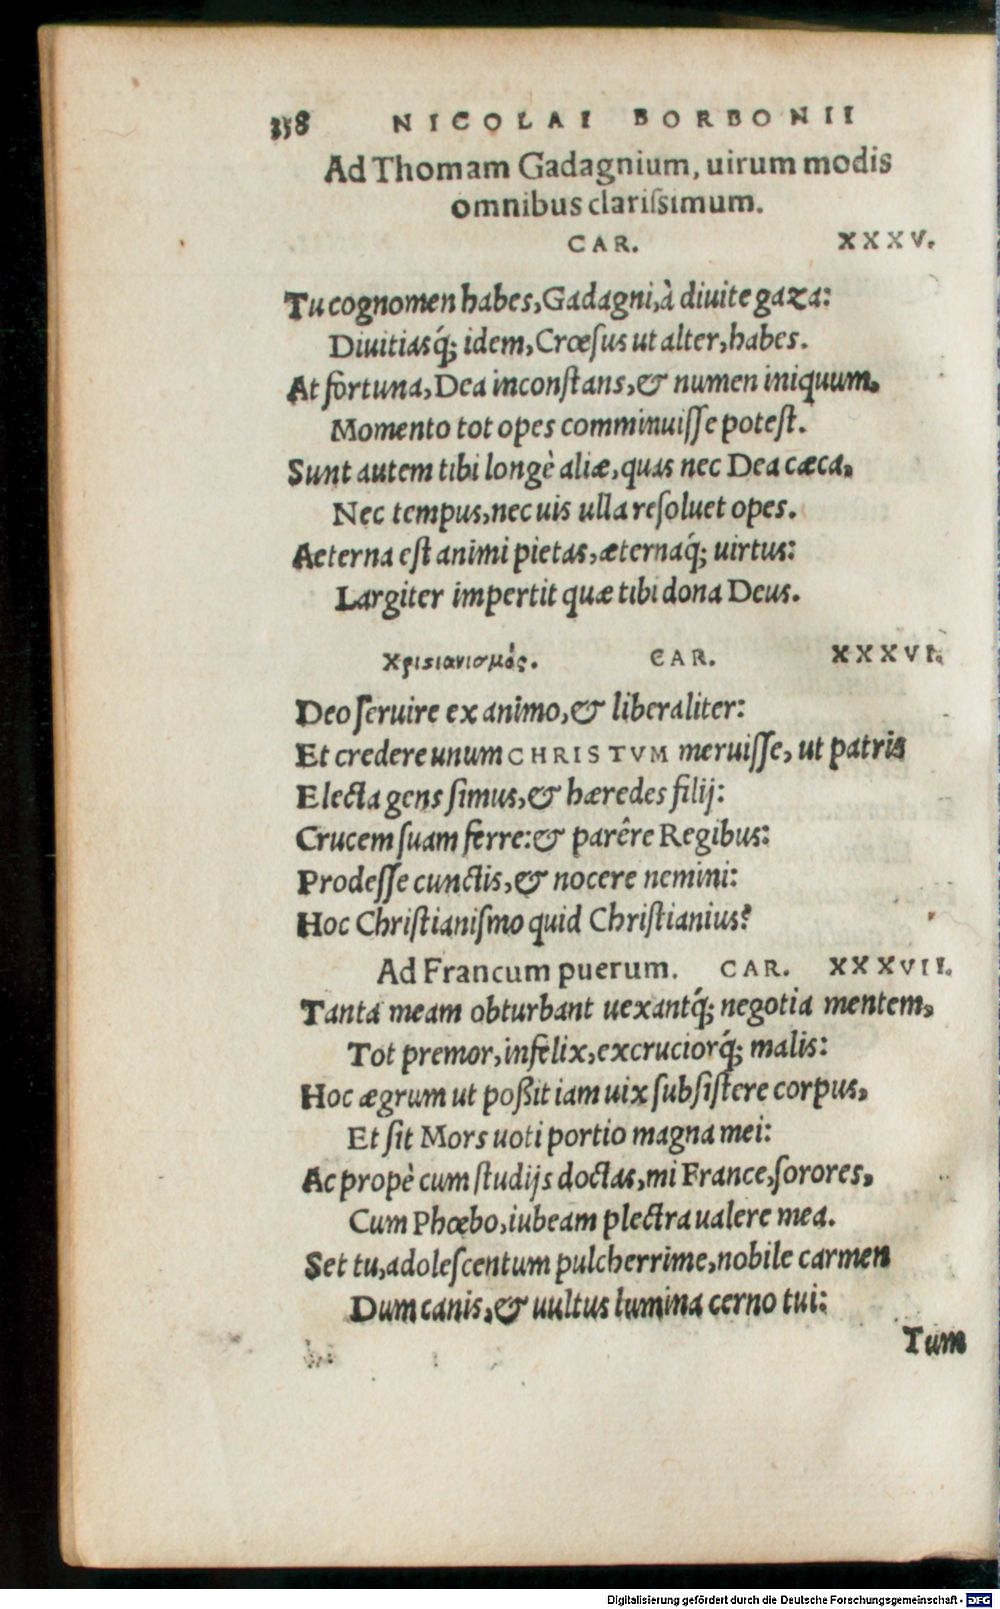 358 NICOLAI BORBONII
Ad Thomam Gadagnium, uirum modis
omnibus clariſsimum.
CAR. XXXV.
Tu cognomen habes, Gadagni, à diuite gaza:
Diuitiasq́; idem, Crœſus ut alter, habes.
At fortuna, Dea inconſtans, & numen iniquum,
Momento tot opes comminuiſſe poteſt.
Sunt autem tibi longè aliæ, quas nec Dea cæca,
Nec tempus, nec uis ulla reſoluet opes.
Aeterna eſt animi pietas, æternaq́; uirtus:
Largiter impertit quæ tibi dona Deus.
Χριςιανισμός. CAR. XXXVI.
Deo ſeruire ex animo, & liberaliter:
Et credere unum CHRISTVM meruiſſe, ut patris
Electa gens ſimus, & hæredes filij:
Crucem ſuam ferre: & parêre Regibus:
Prodeſſe cunctis, & nocere nemini:
Hoc Chriſtianiſmo quid Chriſtianius?
Ad Francum puerum. CAR. XXXVII.
Tanta meam obturbant uexantq́; negotia mentem,
Tot premor, infelix, excruciorq́; malis:
Hoc ægrum ut poßit iam uix ſubſiſtere corpus,
Et ſit Mors uoti portio magna mei:
Ac propè cum ſtudijs doctas, mi France, ſorores,
Cum Phœbo, iubeam plectra ualere mea.
Set tu, adoleſcentum pulcherrime, nobile carmen
Dum canis, & uultus lumina cerno tui:
Tum
Digitalisierung gefördert durch die Deutsche Forschungsgemeinschaft - DFG